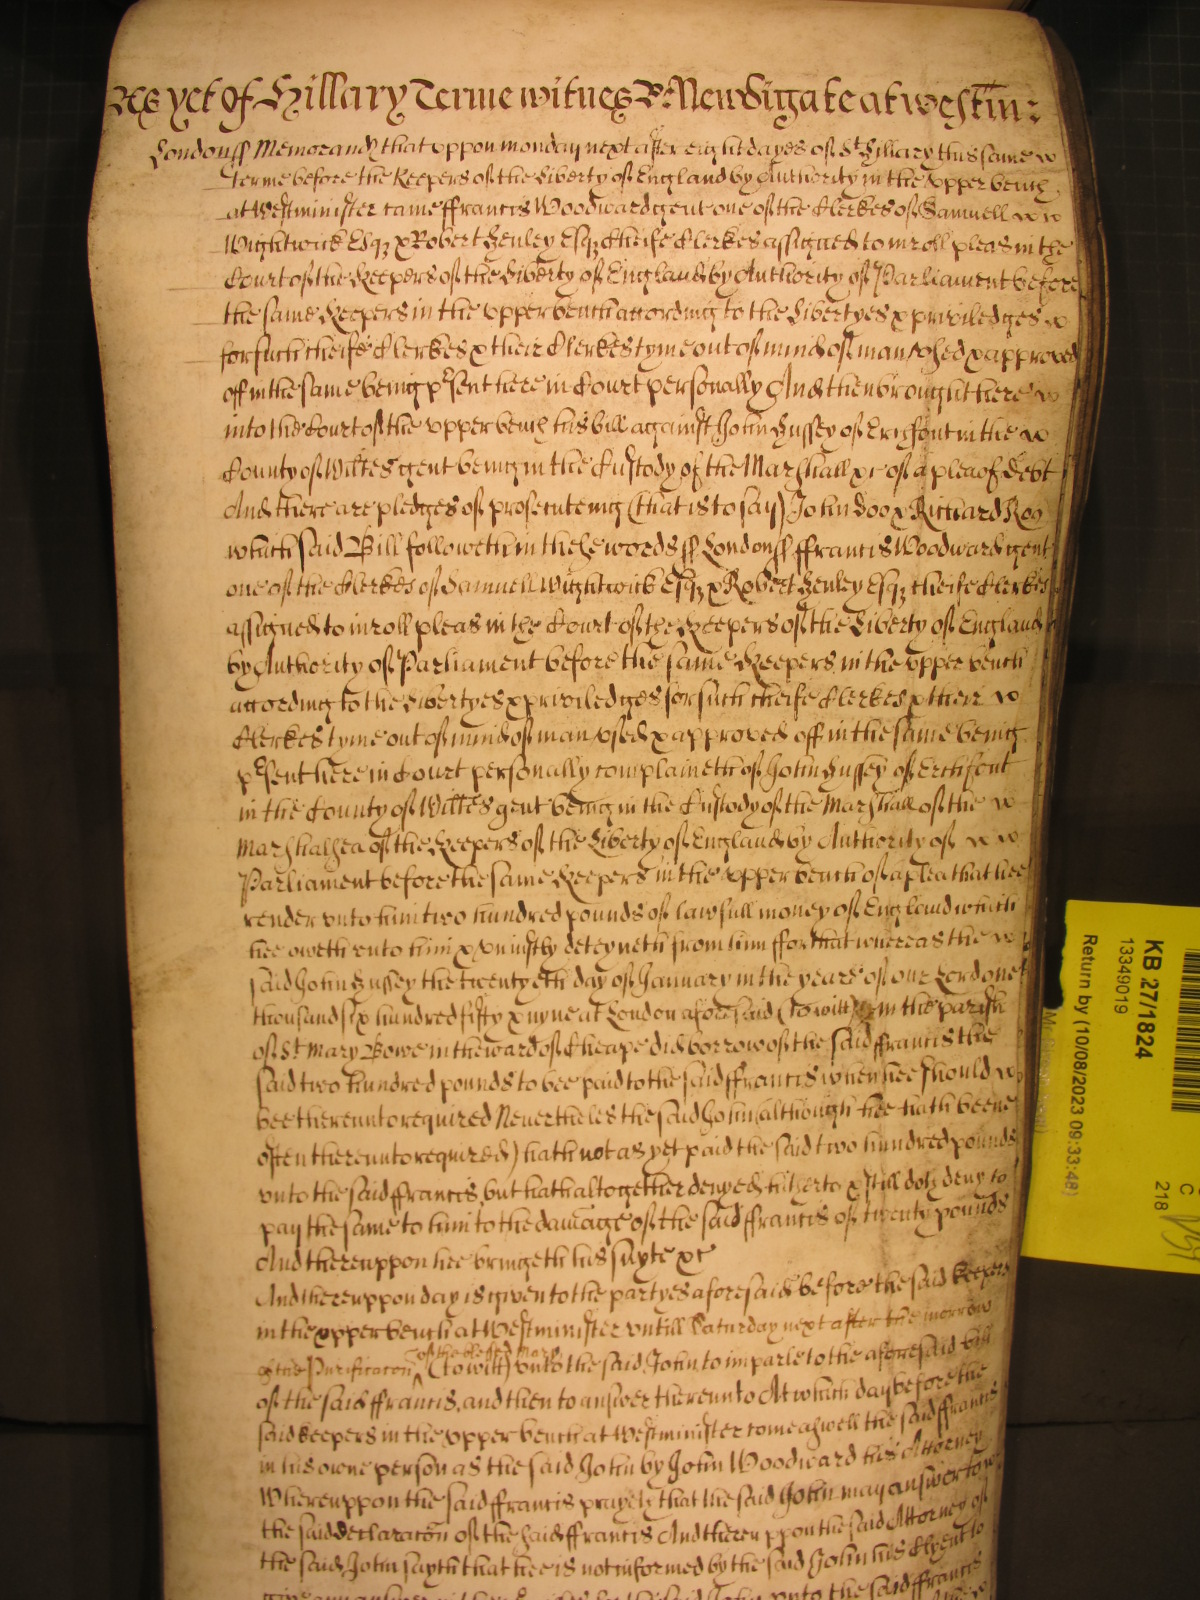 As yet of Hillary Terme witnes R: Newdigate at westm:
London ss Memorand that uppon monday next after eight dayes of St Hillary this same
terme before the Keepers of the Liberty of England by Authority in the upper bench
at Westminister came ffrancis Woodward gent one of the Clerkes of Samuell
Wightwick Esqz & Robert Henley Esqz Cheife Clerkes assigned to inroll pleas in the
Court of the Keepers of the Liberty of England by Authority of Parliament before
the same Keepers in the upper bench according to the Libertyes & priviledges
for such cheife Clerkes & their Clerkes tyme out of mind of man used & approved
off in the same being psent here in Court personally And then brought here
into the Court of the upper bench his bill against John Hussey of in the
County of Wiltes gent being in the Custody of the Marshall &c of a plea of debt
And there are pledges of prosecuteing (that is to say) John Doo & Richard Roo
which said Bill followeth in these words ss London ss ffrancis Woodward gent
one of the Clerkes of Samuell Wightwick Esqz & Robert Henley Esqz cheife Clerkes
assigned to inroll pleas in the Court of the Keepers of the Liberty of England
by Authority of Parliament before the same Keepers in the upper bench
according to the Libertyes & priviledges for such cheife Clerkes & their
Clerkes tyme out of mind of man used & approved off in the same being
psent here in Court personally complaineth of John Hussey of Erchfont
in the County of Wiltes gent being in the Custody of the Marshall of the
Marshalsea of the Keepers of the Liberty of England by Authority of
Parliament before the same Keepers in the upper bench of a plea that hee
render unto him two hundred pounds of lawfull money of England which
hee oweth unto him & uniustly deteyneth from him ffor that whereas the
said John Hussey the twentyeth day of January in the yeare of our Lord one
thousand six hundred fifty & nyne at London aforesaid (to witt) in the parish
of St Mary Bowe in the ward of Cheape did borrow of the said ffrancis the
said two hundred pounds to bee paid to the said ffrancis when hee should
bee thereunto required Nevertheles the said John (although hee hath beene
often thereunto required) hath not as yet paid the said two hundred pounds
unto the said ffrancis but hath altogether denyed hitherto & still doth deny to
pay the same to him to the damage of the said ffrancis of twenty pounds
And thereuppon hee bringeth his suyte &c
And thereuppon day is given to the partyes aforesaid before the said Keepers
in the upper bench at Westminister untill Saturday next after the morrow
of the Purificacon of the blessed Mary (to witt) unto the said John to imparle to the aforesaid bill
of the said ffrancis, and then to answer thereunto At which day before the
said keepers in the upper bench at Westminister come aswell the said ffrancis
in his owne person as the said John by John Woodward his Attorney
Whereuppon the said ffrancis prayeth that the said John may answer to
the said declaracon of the said ffrancis And thereuppon the said Attorney of
the said John sayth that hee is not informed by the said John his Clyent to
unto the said ffrancis
KB 27/1824
13349019
Return by (10/08/2023 09:33:48)
C
218